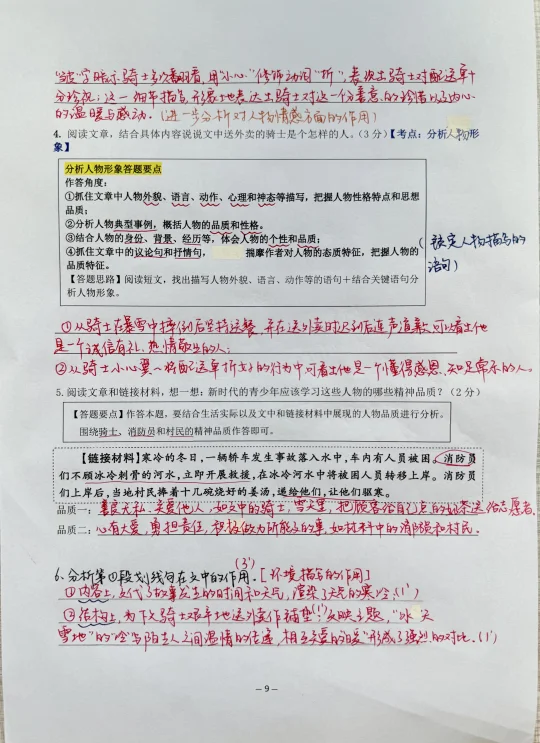 "皱"字暗示骑士多次翻看,用"小心"修饰动词"折",表现出骑士对配送单十
分珍视;这一细节描写,形象地表达出骑士对这一份善意的珍惜以及内心
的温暖与感动.(进一步分析对人物情感方面的作用)
4. 阅读文章,结合具体内容说说文中送外卖的骑士是个怎样的人。(3 分)【考点:分析人物形
象】
分析人物形象答题要点
作答角度:
①抓住文章中人物外貌、语言、动作、心理和神态等描写,把握人物性格特点和思想
品质;
②分析人物典型事例,概括人物的品质和性格。
③结合人物的身份、背景、经历等,体会人物的个性和品质;
④抓住文章中的议论句和抒情句, 揣摩作者对人物的态质特征,把握人物的
品质特征。
【答题思路】阅读短文,找出描写人物外貌、语言、动作等的语句+结合关键语句分
析人物形象。
(锁定人物描写的
语句)
①从骑士在暴雪中摔倒后坚持送餐,并在送外卖时迟到后连声道歉可以看出他
是一个诚信有礼,热情敬业的人;
②从骑士小心翼翼将配送单折好的行为中可看出他是个懂得感恩、知足常乐的人。
5. 阅读文章和链接材料,想一想:新时代的青少年应该学习这些人物的哪些精神品质?(2 分)
【答题要点】作答本题,要结合生活实际以及文中和链接材料中展现的人物品质进行分析。
围绕骑士,消防员和村民的精神品质作答即可。
【链接材料】寒冷的冬日,一辆轿车发生事故落入水中,车内有人员被困。消防员
们不顾冰冷刺骨的河水,立即开展救援,在冰冷河水中将被困人员转移上岸。消防员
们上岸后,当地村民捧着十几碗烧好的姜汤,递给他们,让他们驱寒。
品质一:善良无私、关爱他人,如文中的骑士,雪天里,把顾客给自己点的奶茶送给志愿者.
品质二:心有大爱,勇担责任,积极做力所能及的事,如材料中的消防员和村民.
(3')
6、分析第四段划线句在文中的作用.[环境描写的作用]
①内容上,交代了故事发生的时间和天气,渲染了天气的寒冷;(1')
②结构上,为下文骑士艰辛地送外卖作铺垫;(1')反映主题,"冰天
雪地"的"冷"与陌生人之间温情的传递,相互关爱的"暖"形成了强烈的对比.(1')
— 9 —